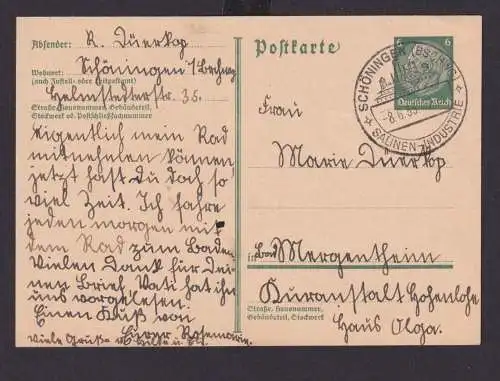 Absender: R. Düerkop
Wohnort: Schöningen /Brschwg
(auch Zustell- oder Leitpostamt)
Helmstedterstr. 35.
Straße, Hausnummer, Gebäudeteil,
Stockwerk od. Postschließfachnummer
eigentlich mein Rad
mitnehmen können
jetzt hast du doch so
viel Zeit. Ich fahre
jeden morgen mit
dem Rad zum Baden.
Vielen Dank für Dei-
nen Brief. Vati hat ihn
uns vorgelesen.
Einen Kuß von
Eurer Rosemarie.
Viele Grüße
Postkarte
6 6
Deutsches Reich
SCHÖNINGEN (BSCHWG)
-8.6.35
SALINEN-INDUSTRIE
Frau
Marie Düerkop
in Bad Mergentheim
Kuranstalt Hohenlohe
Straße, Hausnummer,
Gebäudeteil, Stockwerk
Haus Olga.